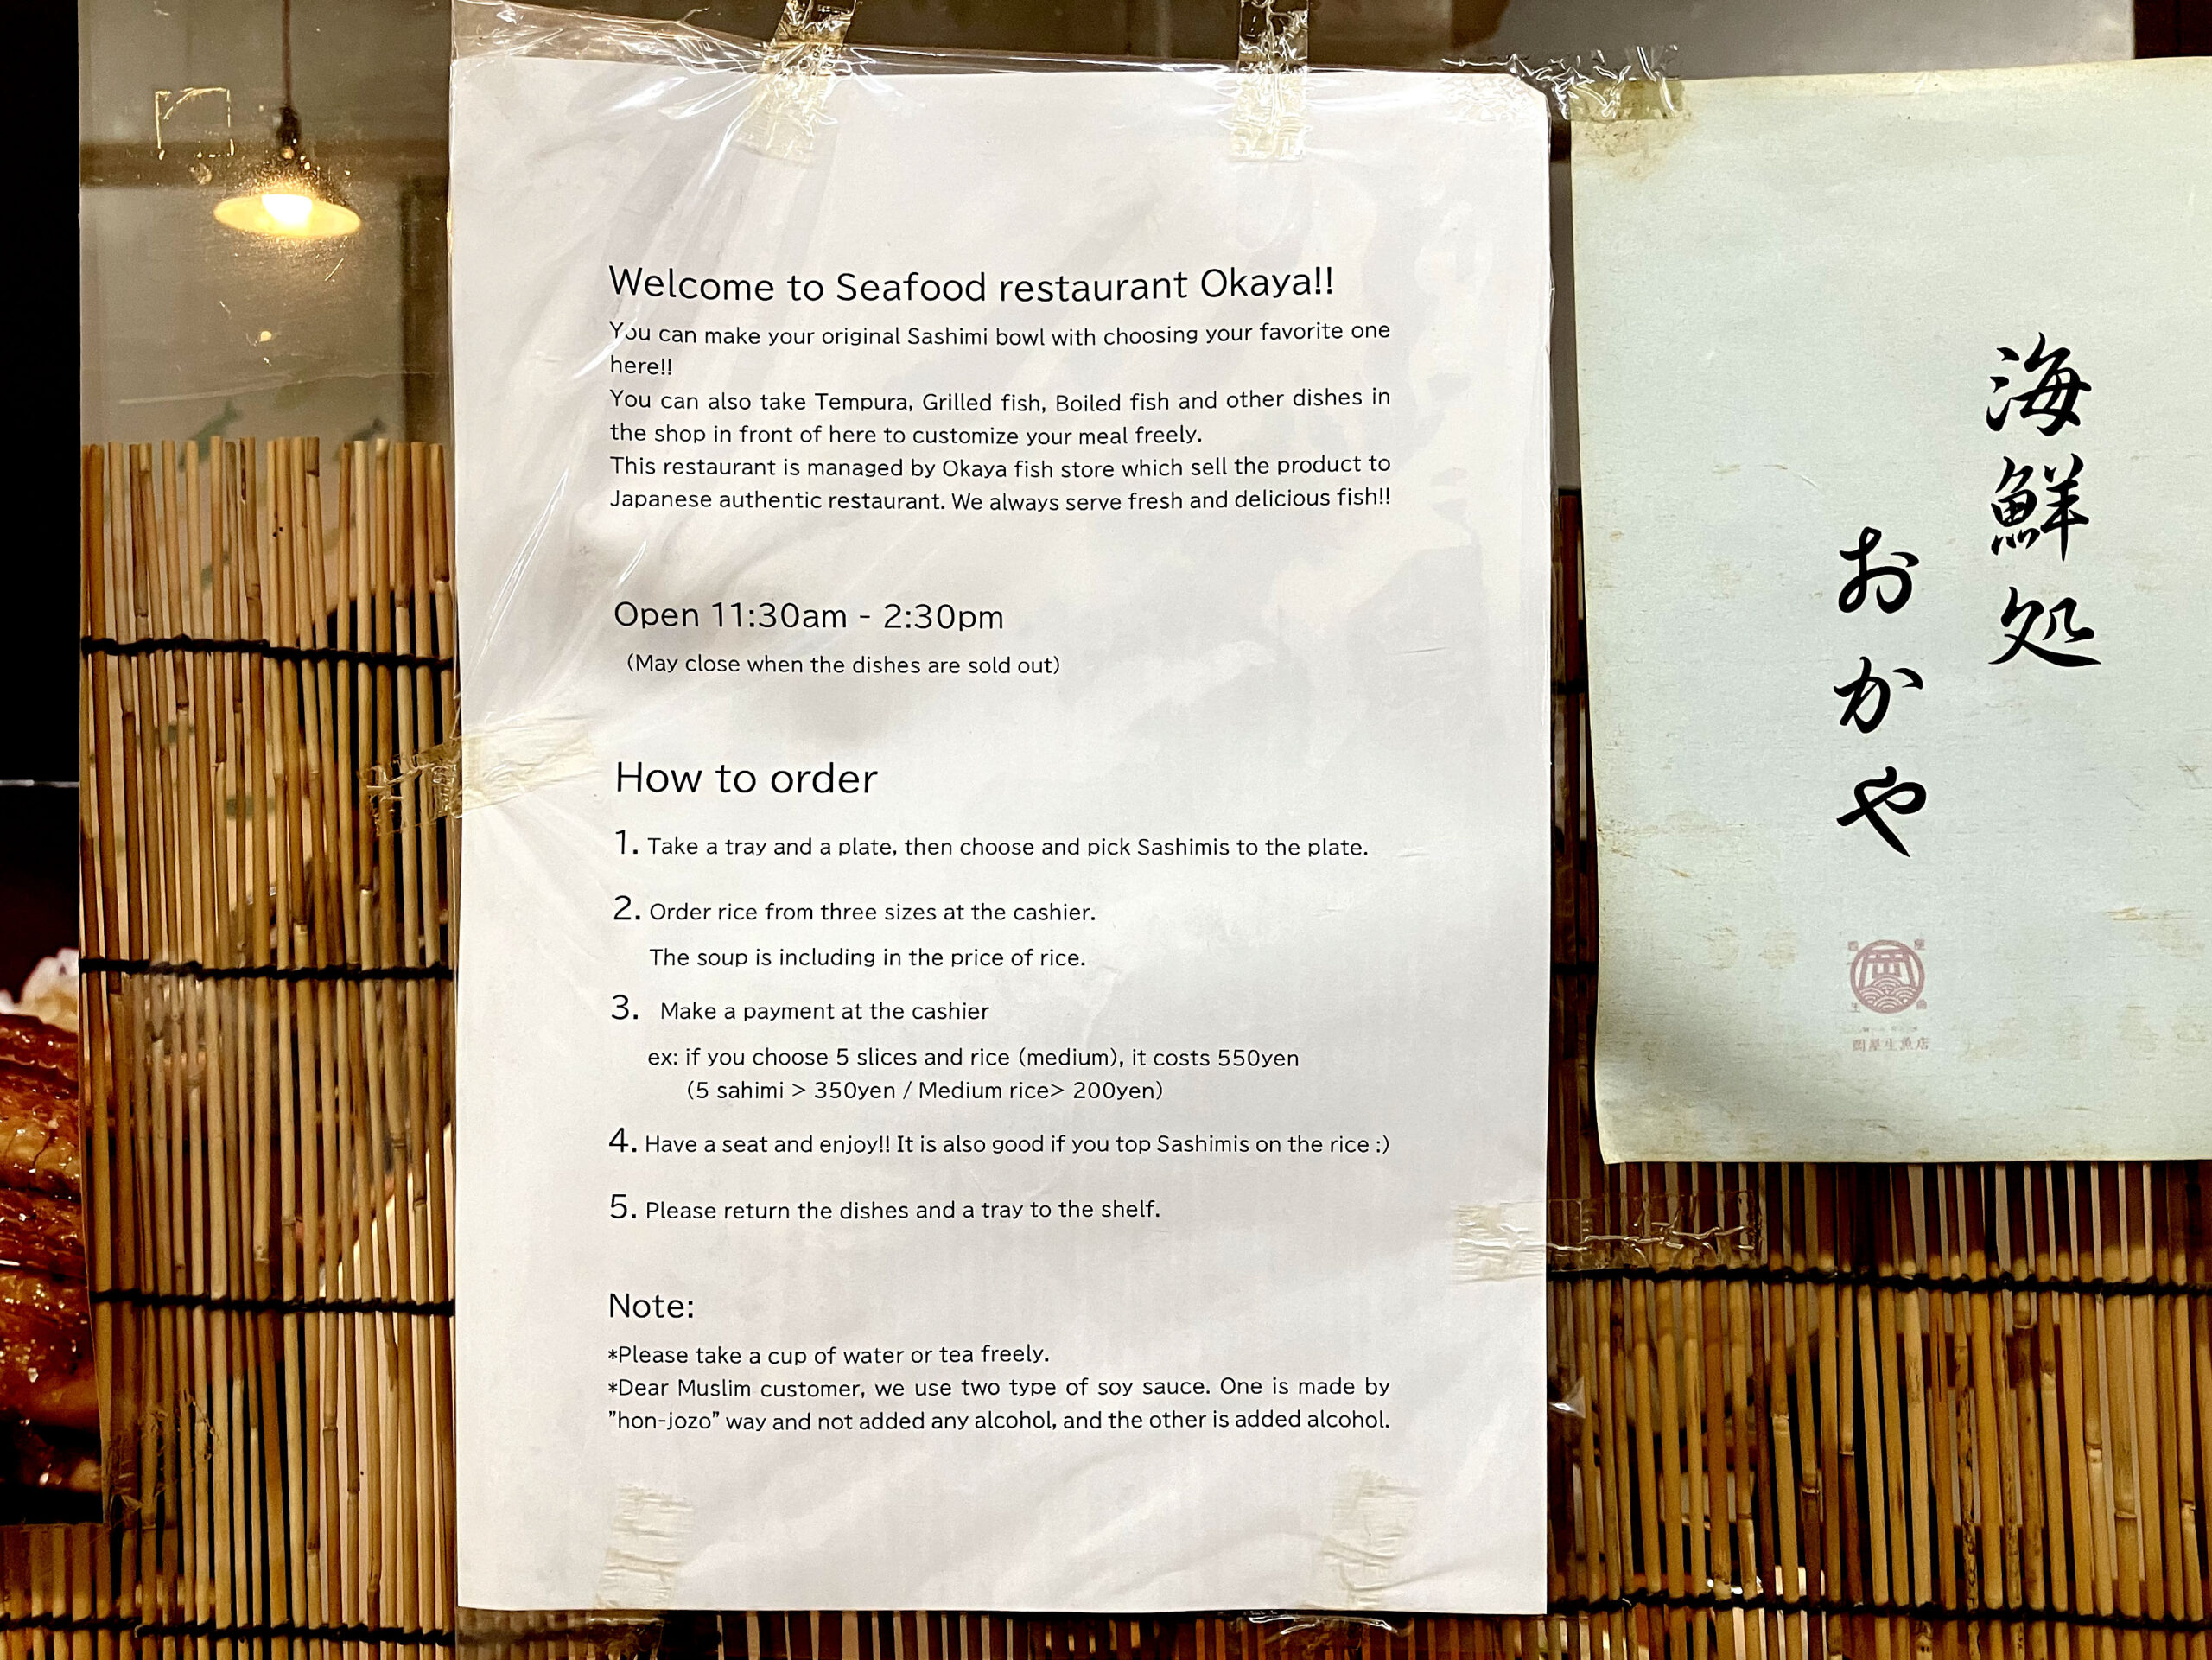 Welcome to Seafood restaurant Okaya!!
You can make your original Sashimi bowl with choosing your favorite one
here!!
You can also take Tempura, Grilled fish, Boiled fish and other dishes in
the shop in front of here to customize your meal freely.
This restaurant is managed by Okaya fish store which sell the product to
Japanese authentic restaurant. We always serve fresh and delicious fish!!
Open 11:30am - 2:30pm
(May close when the dishes are sold out)
How to order
1. Take a tray and a plate, then choose and pick Sashimis to the plate.
2. Order rice from three sizes at the cashier.
The soup is including in the price of rice.
3. Make a payment at the cashier
ex: if you choose 5 slices and rice (medium), it costs 550yen
(5 sahimi > 350yen / Medium rice> 200yen)
4. Have a seat and enjoy!! It is also good if you top Sashimis on the rice :)
5. Please return the dishes and a tray to the shelf.
Note:
*Please take a cup of water or tea freely.
*Dear Muslim customer, we use two type of soy sauce. One is made by
"hon-jozo" way and not added any alcohol, and the other is added alcohol.
海鮮処
おかや
岡屋生魚店